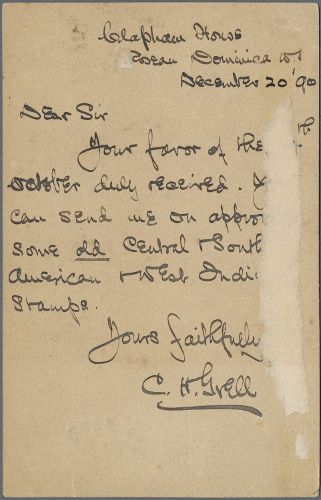 Clapham House
Roseau Dominica W.I
December 20 '90
Dear Sir
Your favor of the th
october duly received. Y
can send me on appro
some old Central & South
American & West Indi
Stamps.
Yours faithfully
C. H. Grell